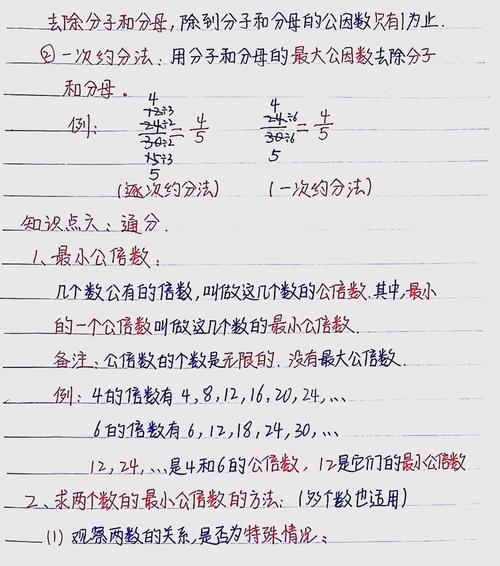 去除分子和分母,除到分子和分母的公因数只有1为止.
②一次约分法:用分子和分母的最大公因数去除分子
和分母。
4 4
12÷3
例: 24÷2/30÷2 = 4/5 24÷6/30÷6 = 4/5
15÷3
5 5
(逐次约分法) (一次约分法)
知识点六:通分.
1、最小公倍数:
几个数公有的倍数,叫做这几个数的公倍数.其中,最小
的一个公倍数叫做这几个数的最小公倍数.
备注:公倍数的个数是无限的.没有最大公倍数.
例:4的倍数有4,8,12,16,20,24,...
6的倍数有6,12,18,24,30,...
12,24,...是4和6的公倍数,12是它们的最小公倍数
2、求两个数的最小公倍数的方法:(多个数也适用)
(1)观察两数的关系,是否为特殊情况: